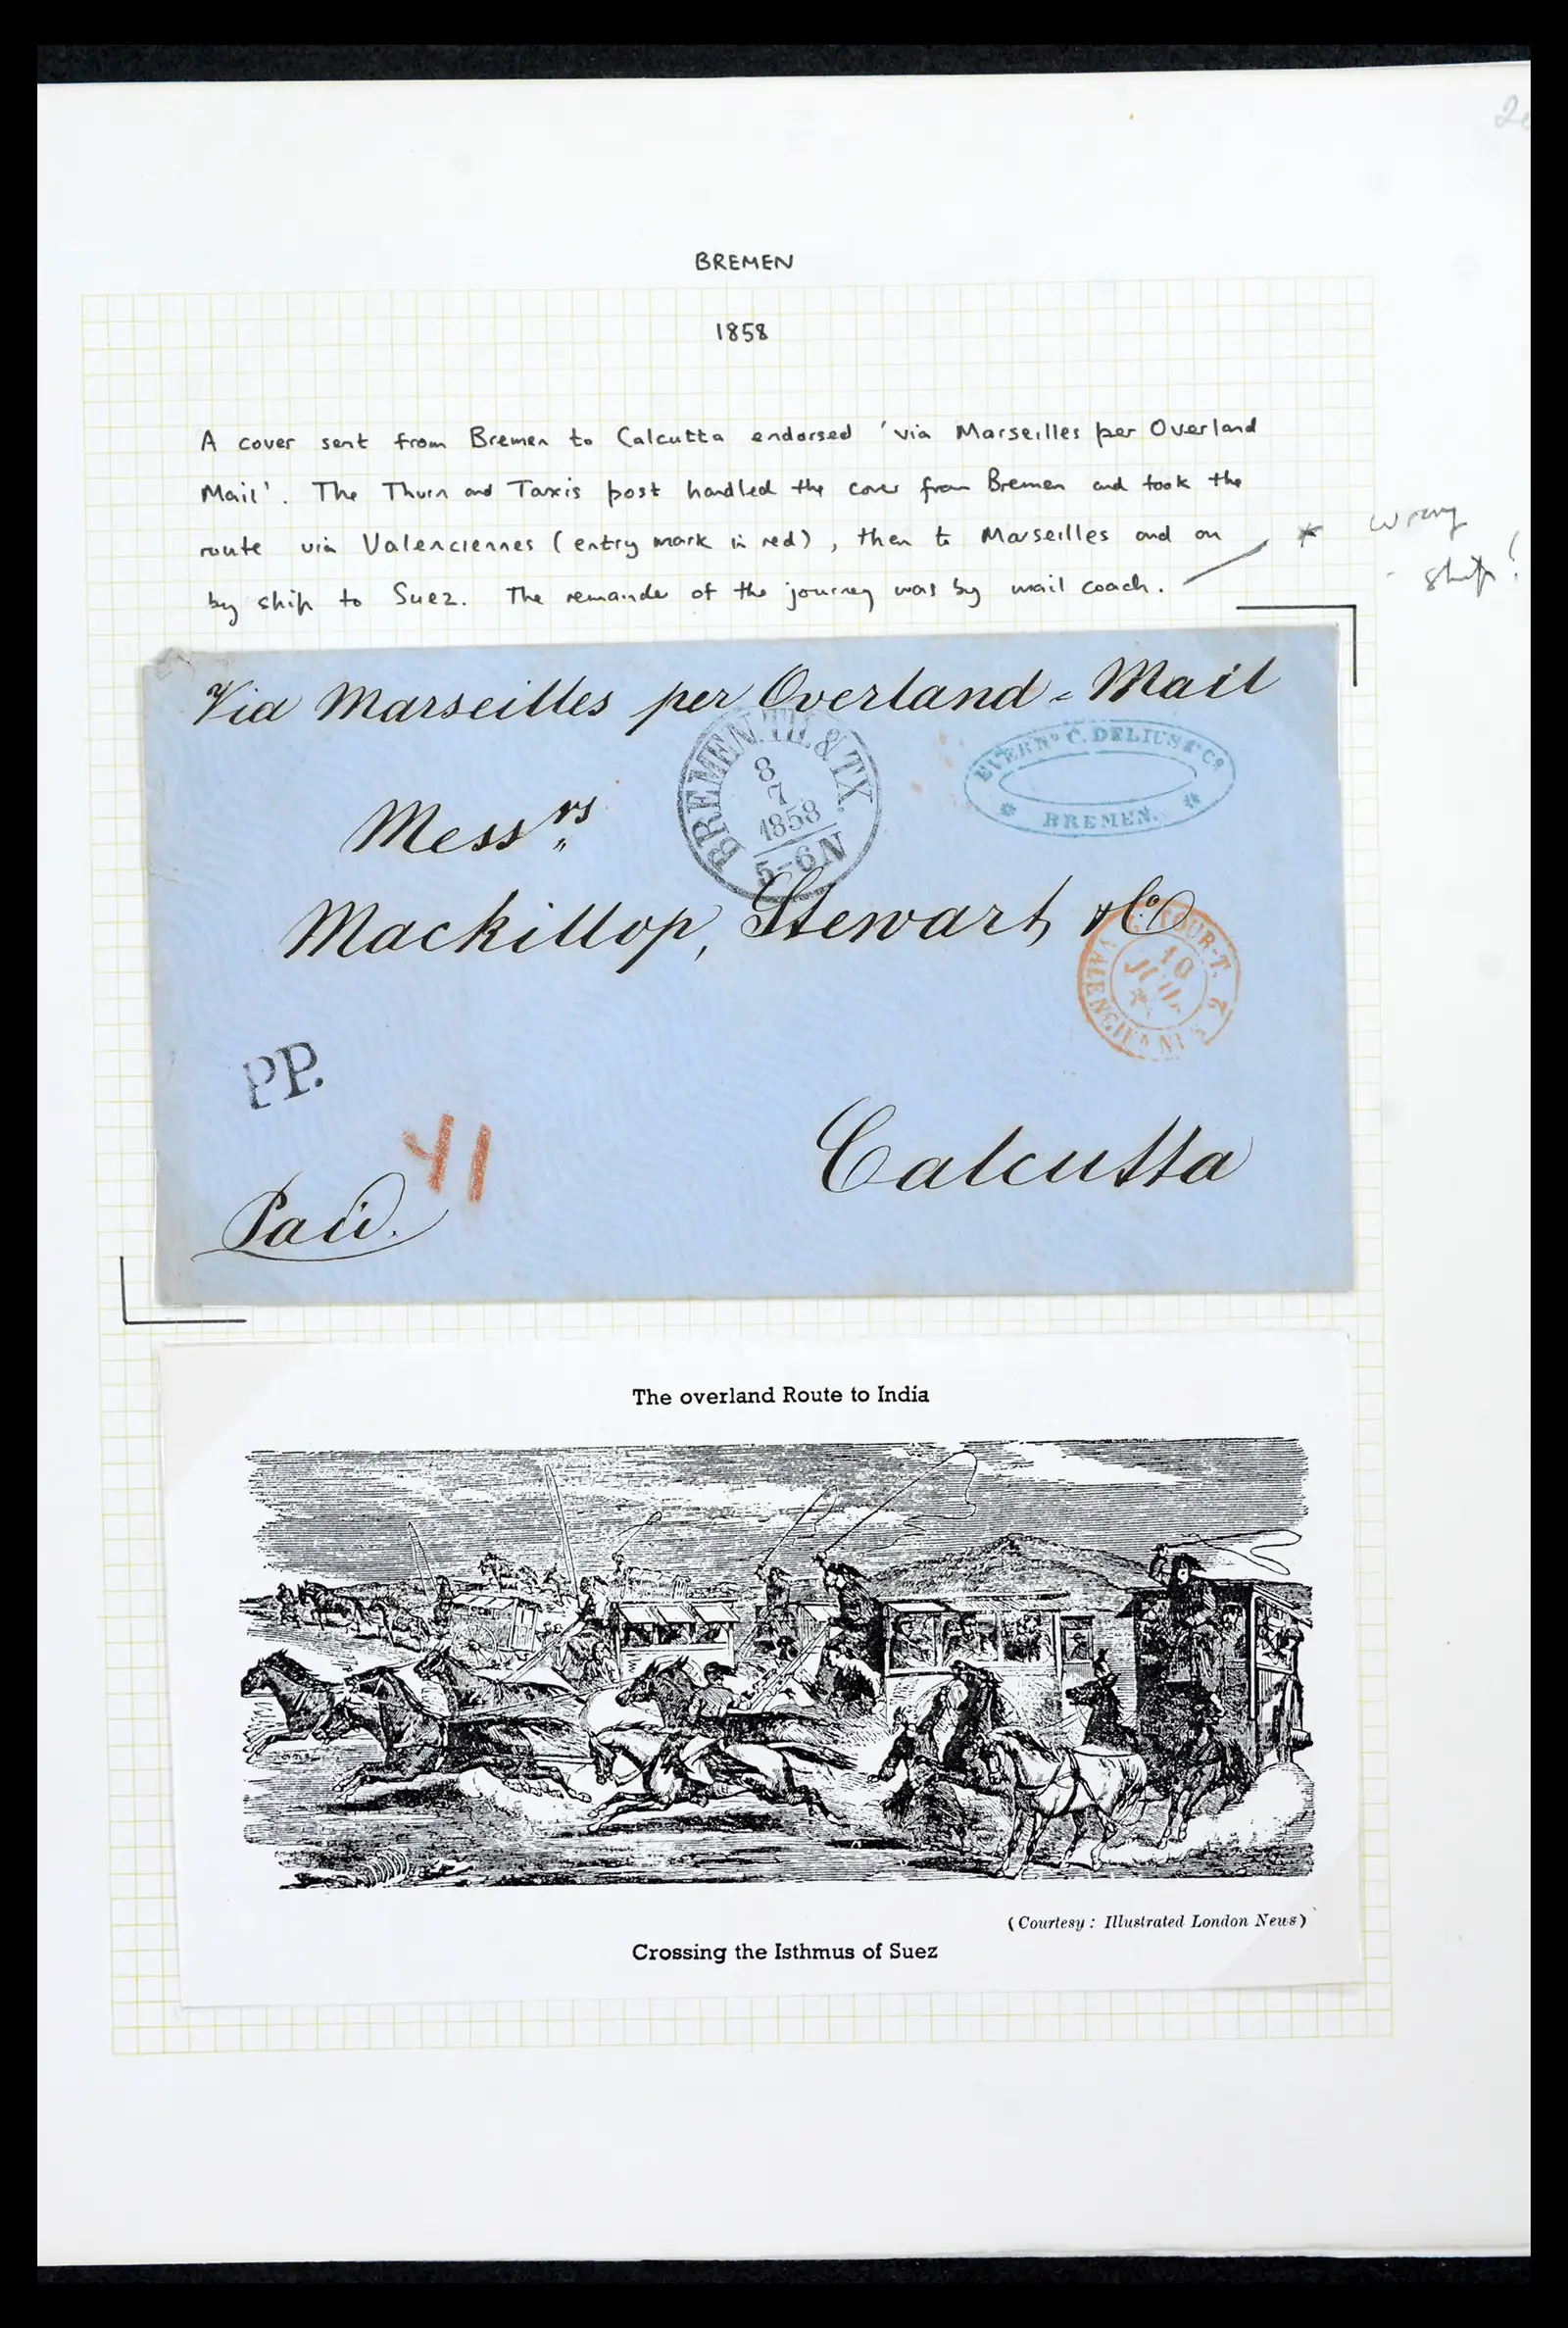 BREMEN
1858
A cover sent from Bremen to Calcutta endorsed 'via Marseilles per Overland
Mail'. The Thurn and Taxis post handled the cover from Bremen and took the
route via Valenciennes (entry mark in red), then to Marseilles and on
by ship to Suez. The remainder of the journey was by mail coach.
* wrong
- ship!
Via Marseilles per Overland-Mail
BREMEN. TH. & TX.
8
7
1858
5-6 N
EVERHD C. DELIUS & Co.
BREMEN.
Messrs
Mackillop, Stewart, & Co
TOUR-T.
2
VALENCIENNES
10
JUIL
PP.
41
Calcutta
Paid.
The overland Route to India
(Courtesy: Illustrated London News)
Crossing the Isthmus of Suez